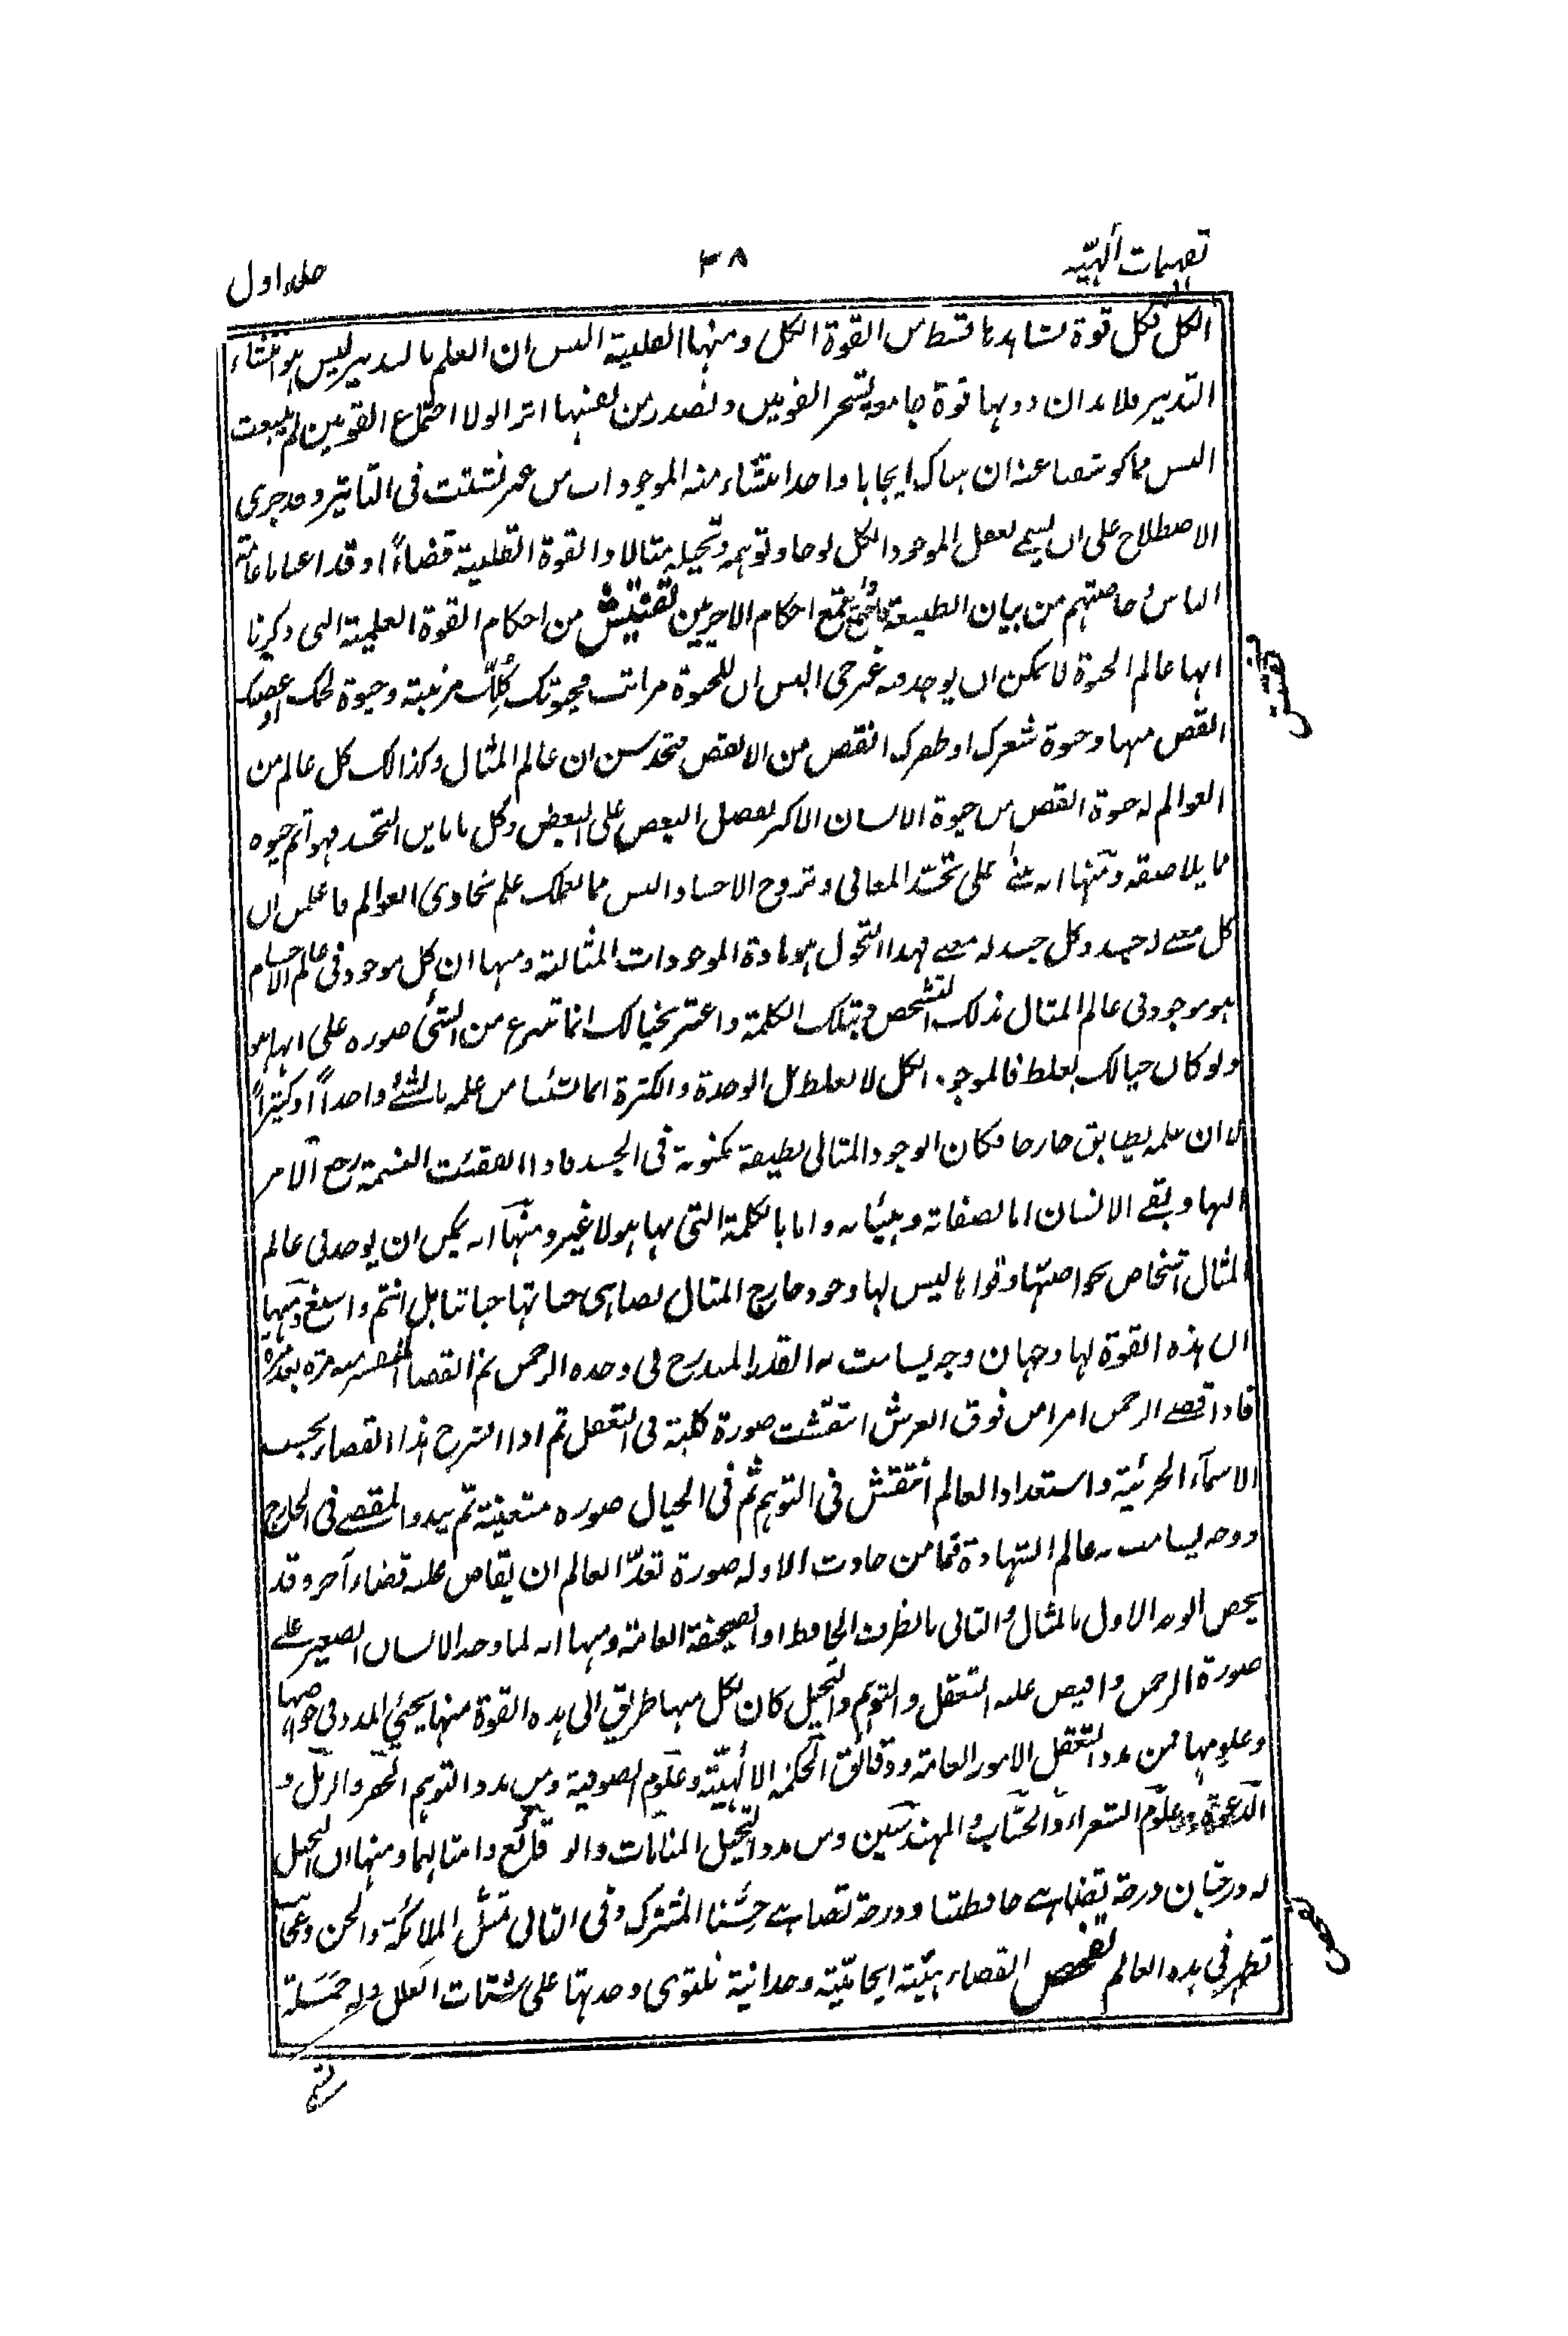 تفهيمات الٓهيّه ٣٨ جلد اول
الكل فكل قوة تشاهدها قسط من القوة الكل ومنها القلبية اليس ان العلم بالتدبير ليس هو انشاء
التدبير فلابد ان دونها قوة جامعة تسخر القوتين وتصدر من بعضها اثر الولا اجتماع القوتين لم ينبعث
اليس مما كوشفنا عنه ان هناك ايجابا واحدا تنشاء منه الموجودات من غير تشتت فى التاثير وقد جرى
الاصطلاح على ان يسمى تعقل الموجود الكل لوحا وتوهمه وتخيله مثالا والقوة القلبية قضاءً وقد اعيانا عامة
الناس خاصتهم من بيان الطبيعة احكام الاخريين تفتيش من احكام القوة العلمية التى ذكرنا
انها عالم الحيوة لا يمكن ان يوجد فيه غير حى اليس ان للحيوة مراتب فحيوتك كلك مرتبة وحيوة لحمك او عصبك
انقص منها وحيوة شعرك او ظفرك انقص من الانقص فتحدس ان عالم المثال وكذالك كل عالم من
العوالم له حيوة انقص من حيوة الانسان الاكبر بفضل البعض على البعض وكل ما باين التجسد فهو اتم حيوه
مما يلاصقه ومنها انه مبنى على تجسّد المعانى وتروح الاجساد اليس مما يعطيك علم تحاذى العوالم فاعلمن ان
كل معنے له جسد وكل جسد له معنے فهذا التحول هو مادة الموجودات المثالية ومنها ان كل موجود فى عالم الاجسام
هو موجود فى عالم المثال بذلك التشخص وبتلك الكلمة واعتبر بخيالك انما تنتزع من الشئ صوره على انها هو
ولو كان خيالك يغلط فالموجود الكل لا يغلط بل الوحدة والكثرة انما تنشا من علمه بالشئے واحداً او كثيراً
لا ان علمه يطابق خارجا فكان الوجود المثالى لطيفة مكنونة فى الجسد فاذا انفقئت النسمة رجع الامر
اليها وبقے الانسان اما بصفاته وهيئاته واما بالكلمة التى بها هو لا غير ومنها انه يمكن ان يوجد فى عالم
المثال اشخاص بخواصتها وقواها ليس لها وجود خارج المثال يضاهى حياتها حياتنا بل اتم واسبغ ومنها
ان هذه القوة لها وجهان وجه يسامت به القدر المندرج فى وحده الرحمن ثم القضا مرة بعد مرة
فاذا قضے الرحمن امرا من فوق العرش انتقشت صورة كلية فى التعقل ثم اذا انشرح هذا القضاء بحسب
الاسماء الجزئية واستعداد العالم انتقش فى التوهم ثم فى الخيال صوره متعينة ثم يبدو المقضے فى الخارج
ووجه يسامت به عالم الشهادة فما من حادث الا وله صورة تعدّ العالم ان يقاض عليه قضاء آخر وقد
يخص الوجه الاول بالمثال والثانى بالظرف الحافظ او الصحيفة العامة ومنها انه لما وجد الانسان الصغير علے
صورة الرحمن وافيض عليه التعقل والتوهم والتخيل كان لكل منها طريق الى هذه القوة منها يجئى المدد فى خواصها
وعلومها فمن مدد التعقل الامور العامة ودقائق الحكمة الالٓهيّة وعلوم الصوفية ومن مدد التوهم الجفر والرمل و
الدعوة وعلوم الشعراء والحسّاب والمهندسين ومن مدد التخيل المنامات والوقائع وامثالهما ومنها ان التخيل
له درجتان درجة تضاهے حافظتنا ودرجة تضاهے حسّنا المشترك وفى الثانى تمثّل الملائكة والجن وعجائب
تظهر فى هذه العالم تفحص القضاء هيئة ايجابيّة وحدانية تلتوى وحدتها على شتات العلل وله خمسة